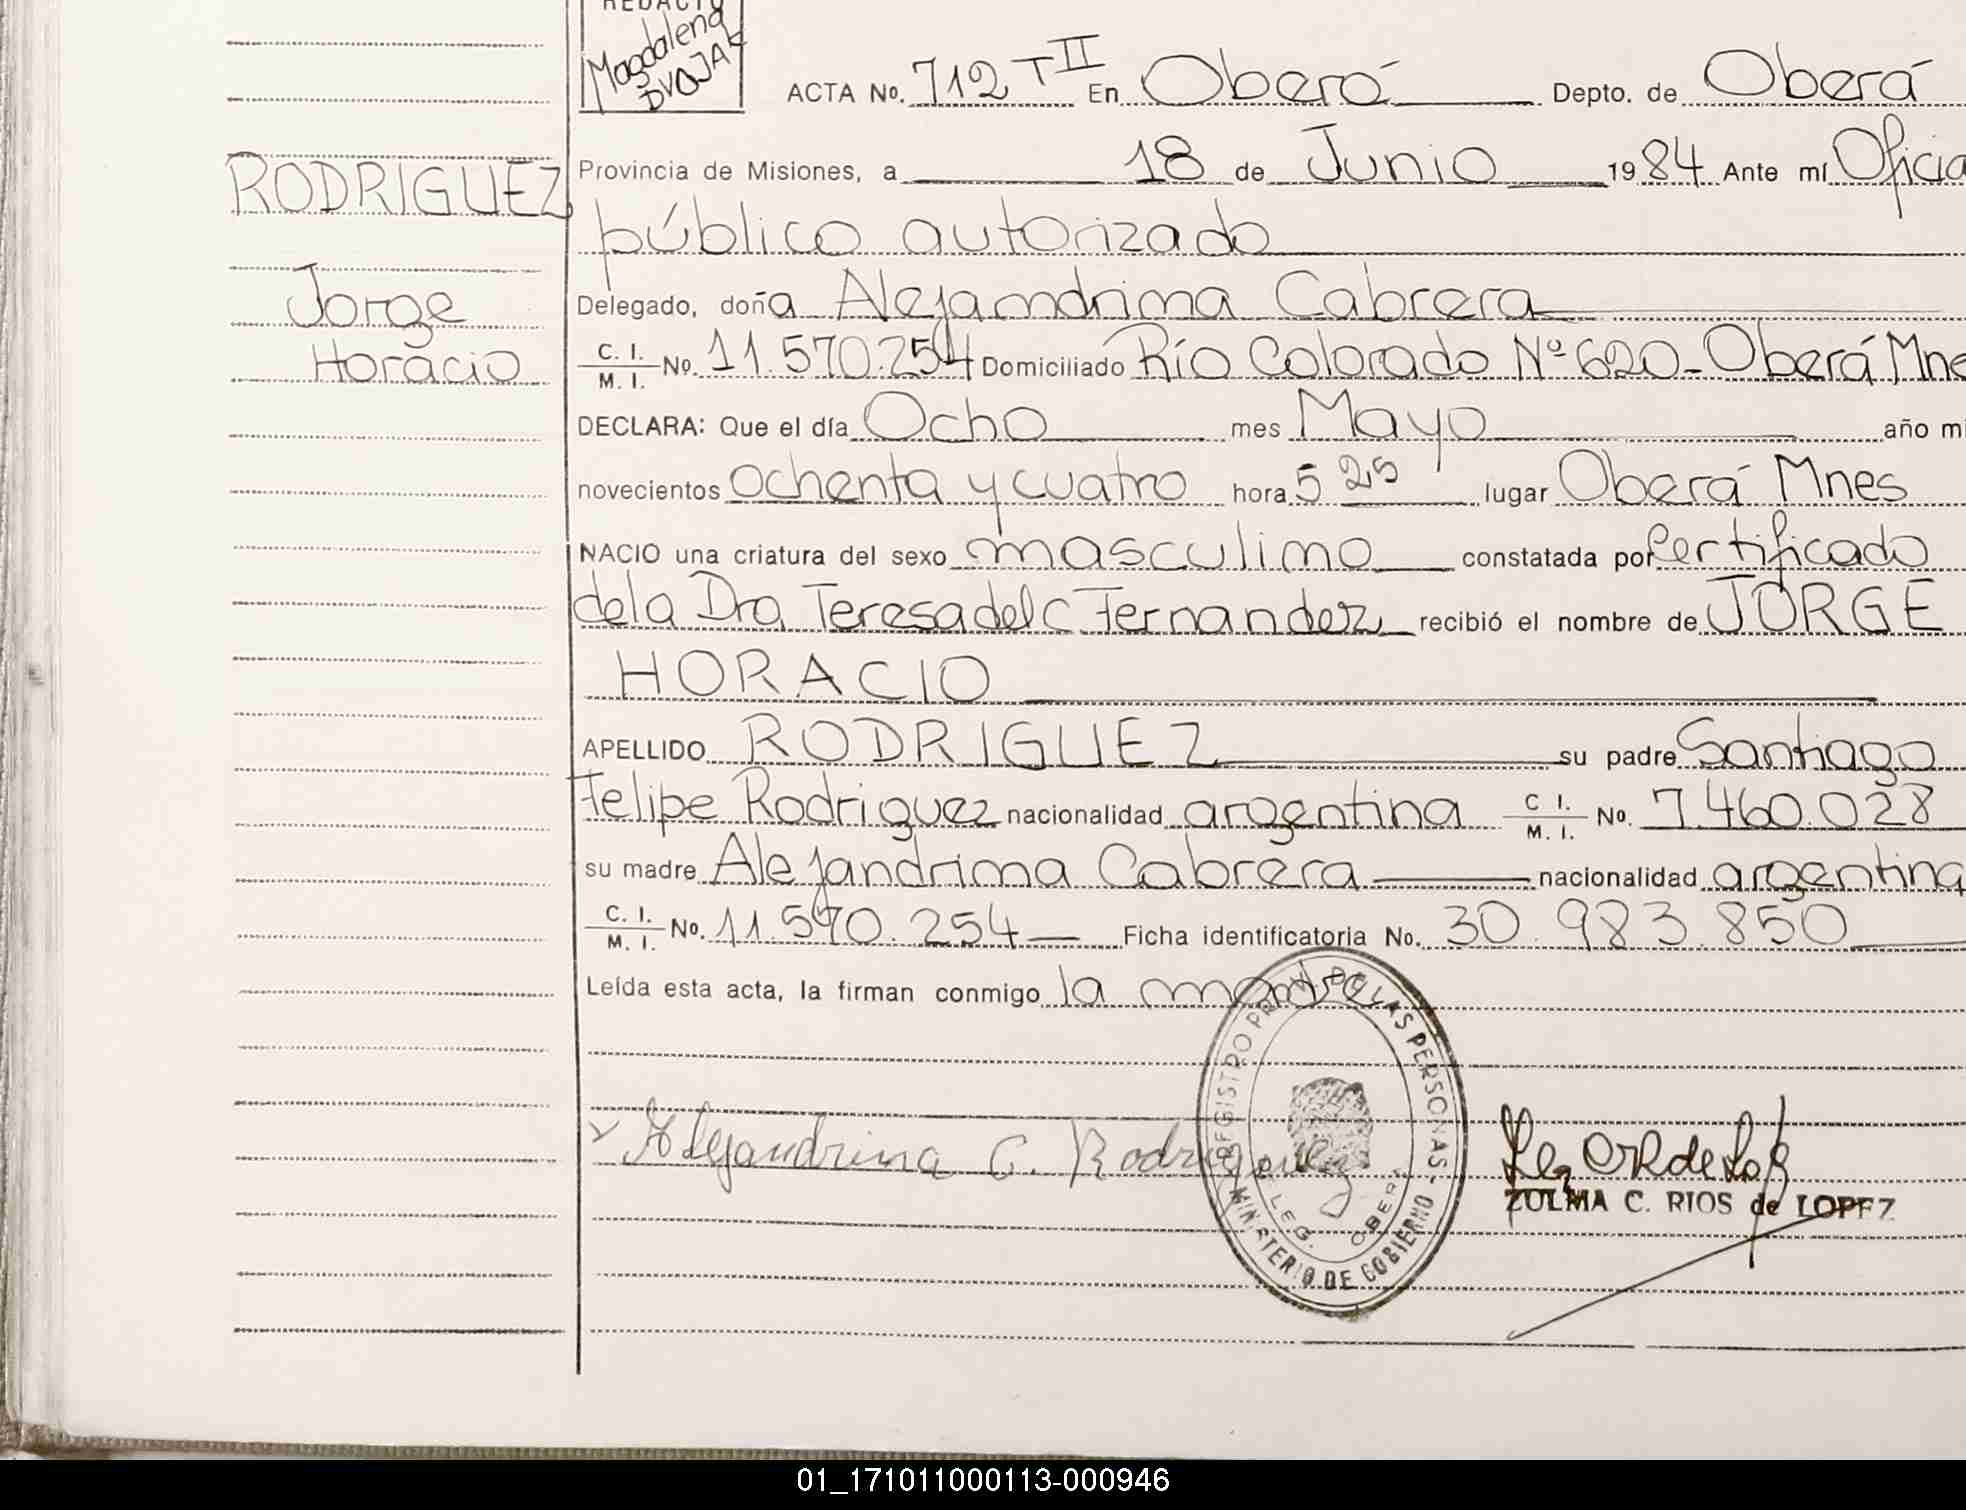 REDACTO
Magdalena
DVOJAK
ACTA No. 712 T II En Oberá Depto. de Oberá
Provincia de Misiones, a 18 de Junio 1984 Ante mí Oficia
RODRIGUEZ
público autorizado
Jorge
Delegado, doña Alejandrina Cabrera
Horacio
C. I. / M. I. No. 11.570.254 Domiciliado Río Colorado Nº 620 - Oberá Mnes
DECLARA: Que el día Ocho mes Mayo año mi
novecientos ochenta y cuatro hora 5 25 lugar Oberá Mnes
NACIO una criatura del sexo masculino constatada por Certificado
de la Dra Teresa del C Fernandez recibió el nombre de JORGE
HORACIO
APELLIDO RODRIGUEZ su padre Santiago
Felipe Rodriguez nacionalidad argentina C I. / M. I. No. 7.460.028
su madre Alejandrina Cabrera nacionalidad argentina
C. I. / M. I. No. 11.570.254 Ficha identificatoria No. 30.983.850
Leída esta acta, la firman conmigo la madre
REGISTRO PROV. DE LAS PERSONAS - MINISTERIO DE GOBIERNO
LEG. OBERA
Alejandrina C. Rodriguez
ZULMA C. RIOS de LOPEZ
01_171011000113-000946